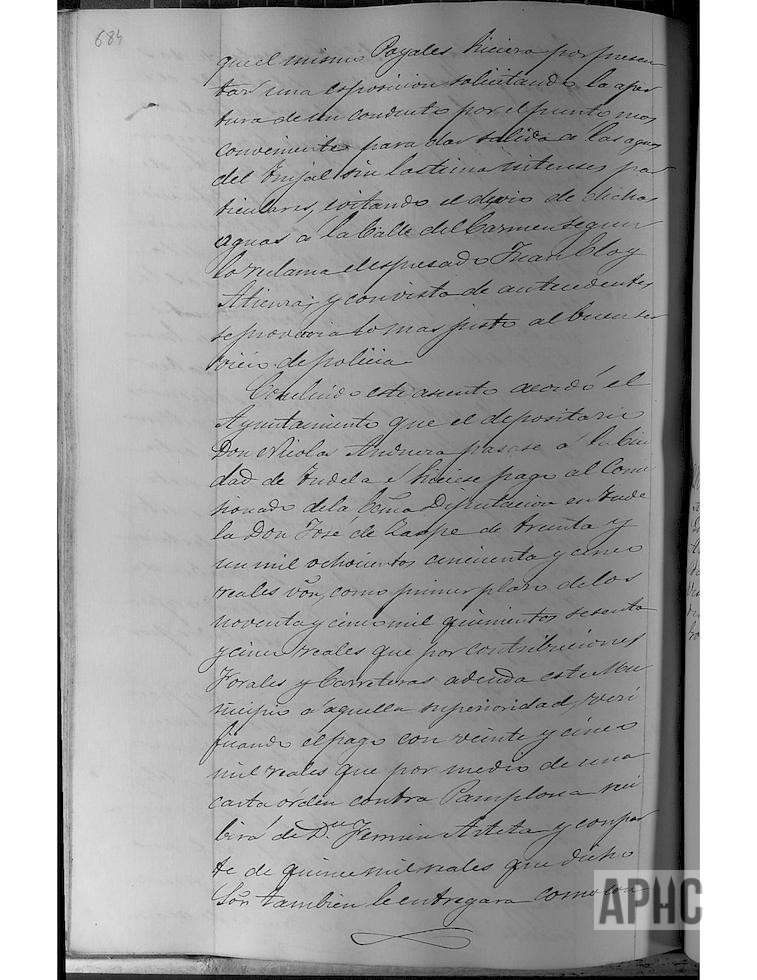 684
que el mismo Pagales hiciera por presen
tar una esposicion solicitando la aper
tura de un conducto por el punto mas
conveniente para dar salida a las aguas
del Trujal sin lastimar intereses par
ticulares, evitando el desvio de dichas
aguas a la Calle del Carmen segun
lo reclama el espresado Juan Eloy
Atienza; y con vista de antecedentes
se proveeria lo mas justo al buen ser
vicio de policia.
Concluido este asunto acordó el
Ayuntamiento que el depositario
Don Nicolas pasase a la Ciu
dad de Tudela é hiciese pago al Comi
sionado de la Ecma Diputacion en Tude
la Don José de de treinta y
un mil ochocientos cincuenta y cinco
reales von, como primer plazo de los
noventa y cinco mil quinientos sesenta
y cinco reales que por contribuciones
Forales y Carreteras adeuda este Mu
nicipio a aquella superioridad, veri
ficando el pago con veinte y cinco
mil reales que por medio de una
carta órden contra Pamplona reci
birá de Dn Fermin Arteta y con par
te de quince mil reales que dicho
Sor tambien le entregara como con
APHC